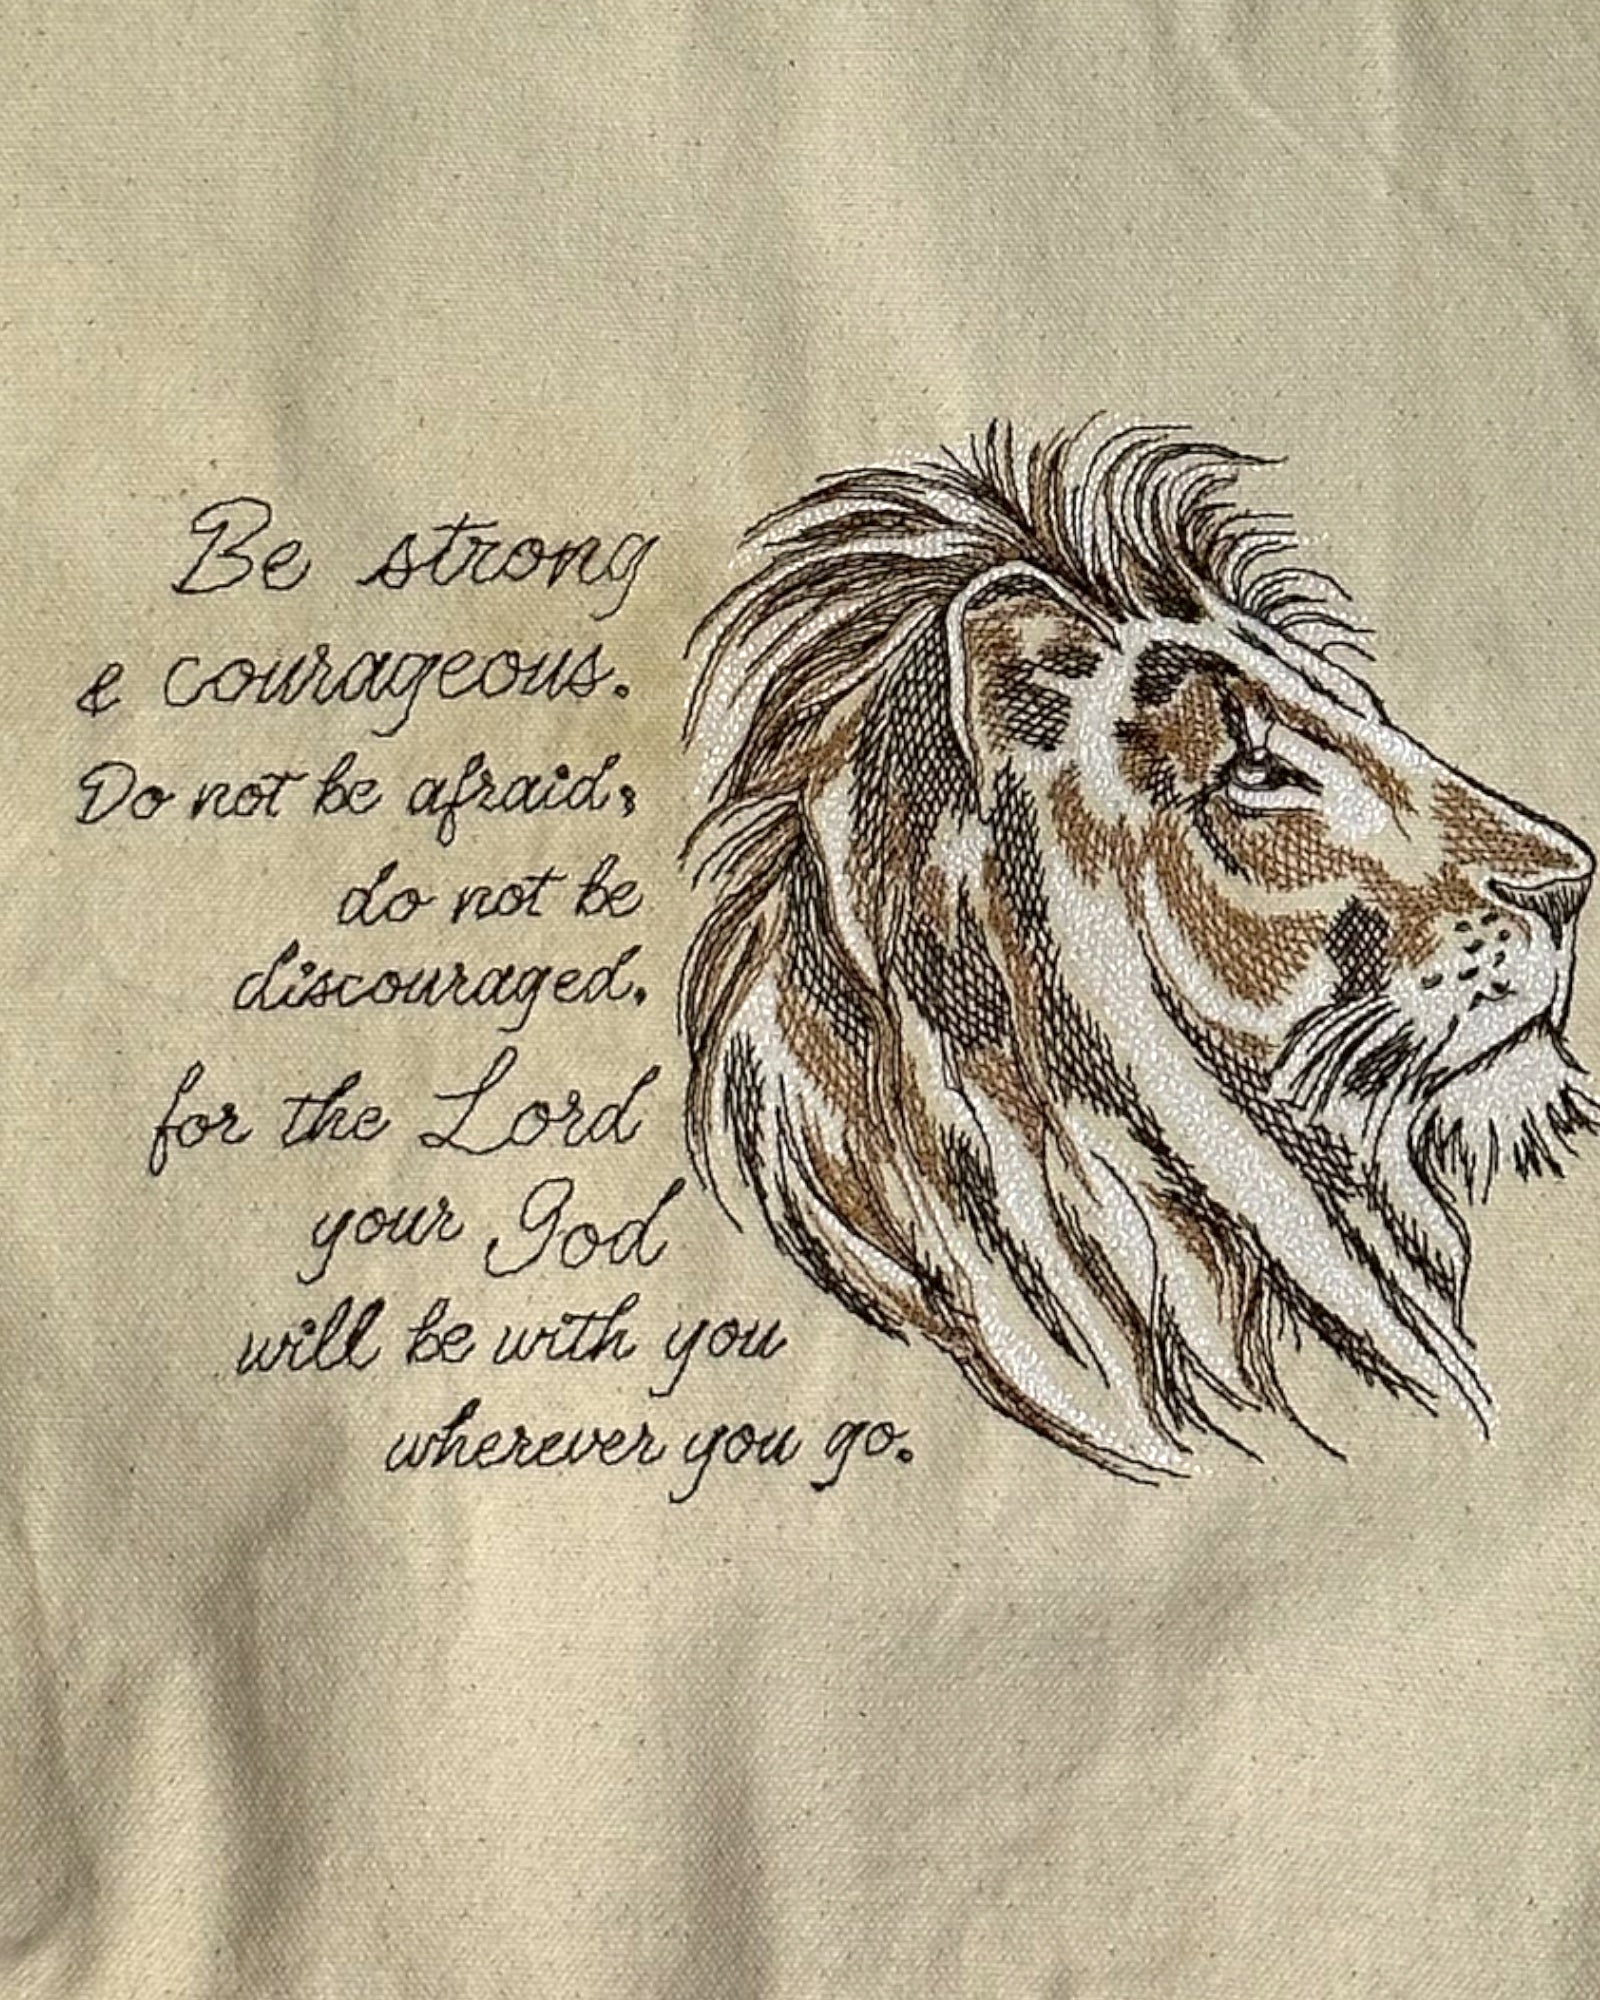 Be strong
& courageous.
Do not be afraid,
do not be
discouraged,
for the Lord
your God
will be with you
wherever you go.